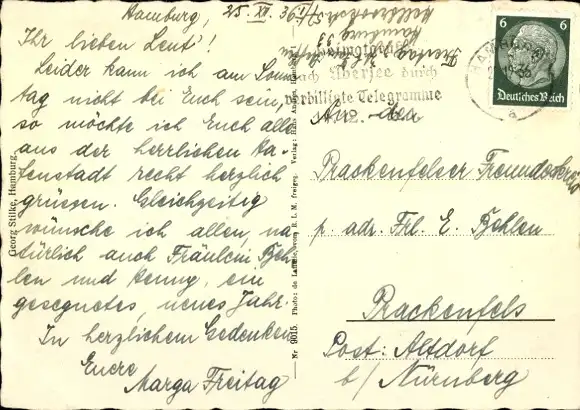 Hamburg, 25. XII. 36
Ihr lieben Leut'!
Leider kann ich am Sonn
tag nicht bei Euch sein,
so möchte ich Euch alle
aus der herrlichen Ha-
fenstadt recht herzlich
grüssen. Gleichzeitig
wünsche ich allen, na
türlich auch Fräulein Beh
len und Henny, ein
gesegnetes, neues Jahr.
In herzlichem Gedenken
Eure
Marga Freitag
Georg Stilke, Hamburg.
Nr. 9015.
Hamburg 33
nach Übersee durch
verbilligte Telegramme
6 6
Deutsches Reich
An den
Prackenfelser Freundeskreis
p. adr. Frl. E. Behlen
Prackenfels
Post: Altdorf
b/ Nürnberg